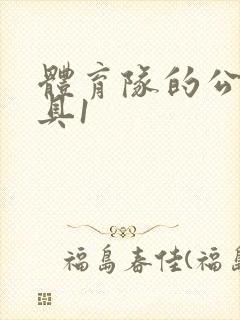 體育隊的公
具1
福島春佳(福島